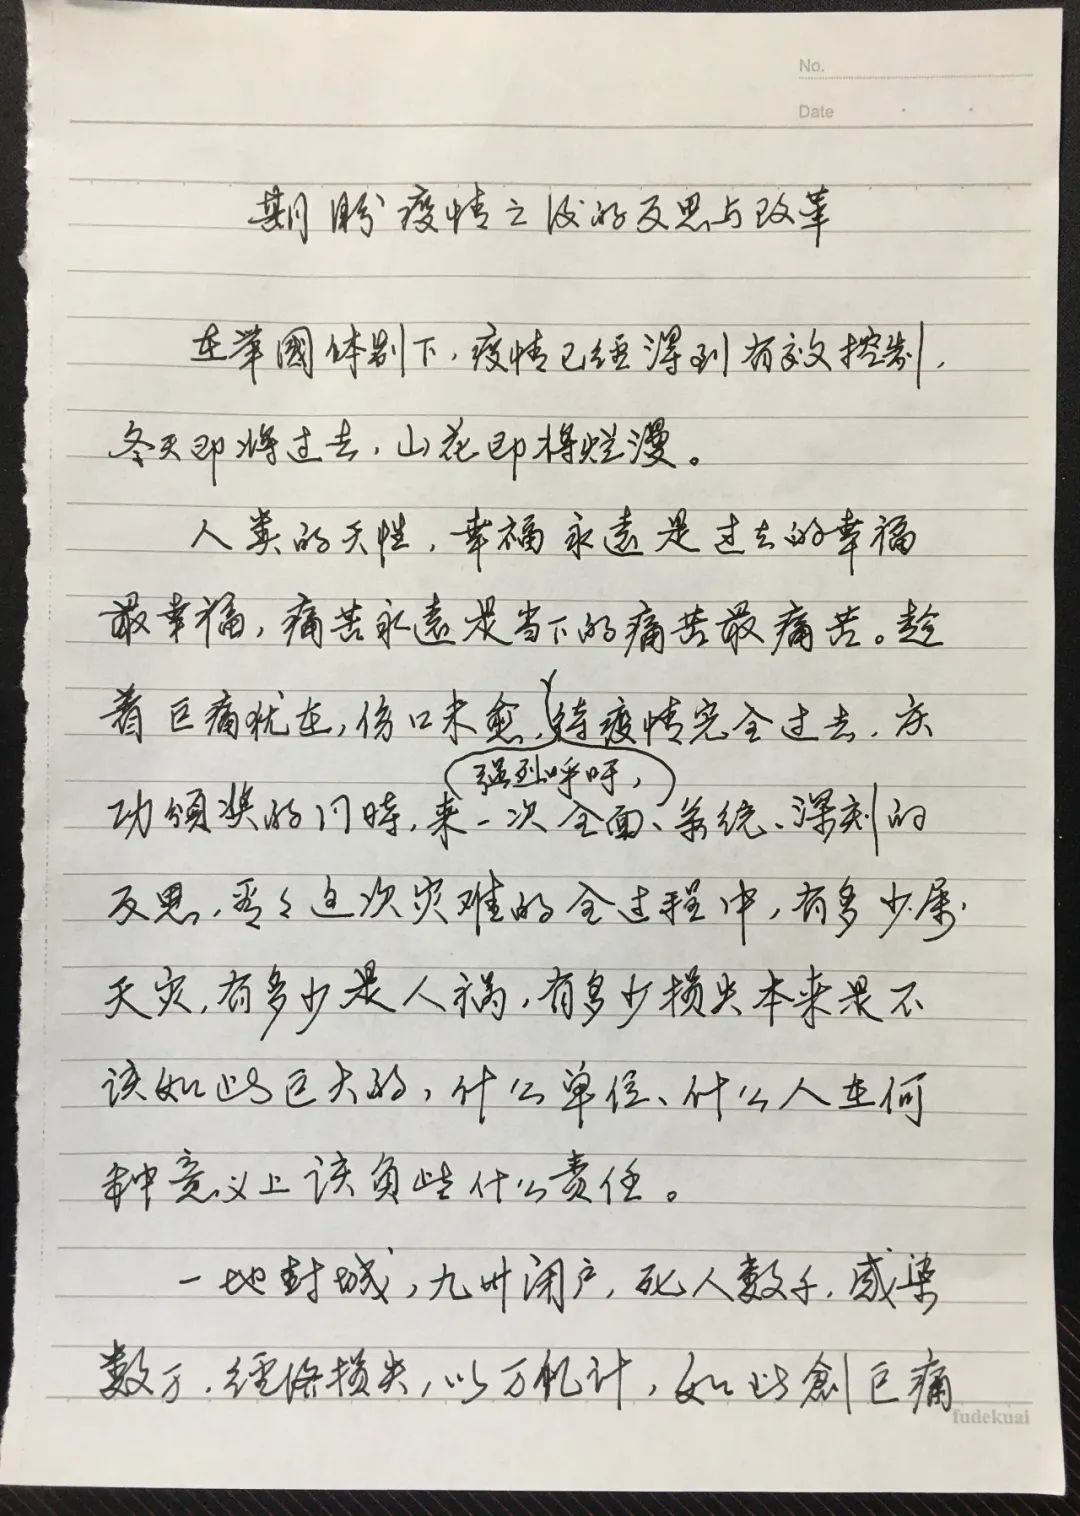 No.
Date
期盼疫情之后的反思与改革
在举國体制下,疫情已经得到有效控制,
冬天即将过去,山花即将烂漫。
人类的天性,幸福永远是过去的幸福
最幸福,痛苦永远是当下的痛苦最痛苦。趁
着巨痛犹在,伤口未愈,待疫情完全过去,庆
强烈呼吁,
功颁奖的同時,来一次全面、系统、深刻的
反思,看看这次灾难的全过程中,有多少属
天灾,有多少是人祸,有多少损失本来是不
该如此巨大的,什么单位、什么人在何
种意义上该负些什么责任。
一地封城,九州闭户,死人数千,感染
数万,经济损失,以万亿计,如此創巨痛
fudekuai